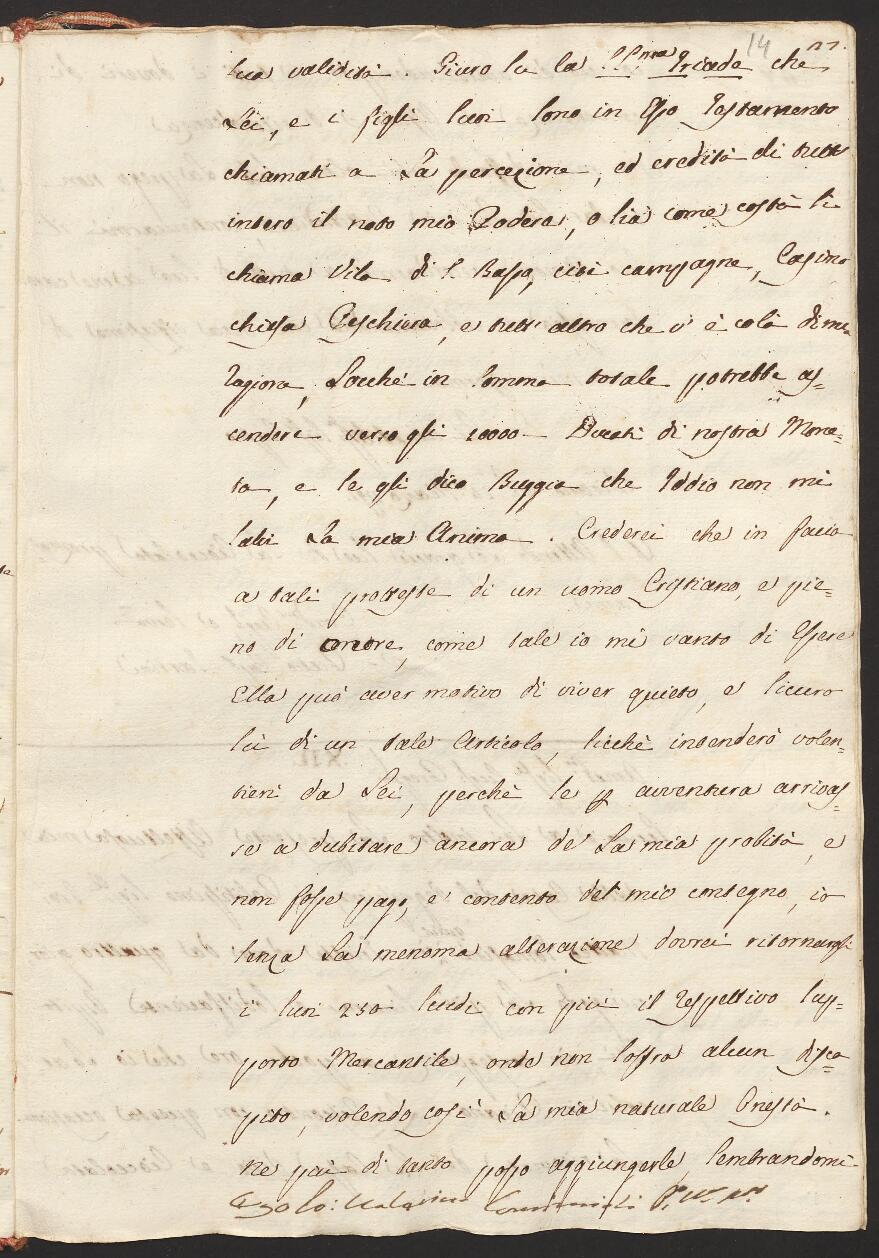 14 27.
sua validità. Giuro su la SS.ma Triade che
Lei, e i figli suoi sono in Esso Testamento
chiamati a La percezione, ed eredità di tutt'
intero il noto mio Podere, o sia come costà si
chiama Vila di S. Basso, cioè campagne, Casino
chiesa Peschiera, e tutt' altro che v' è colà di mia
ragione, Socchè in somma totale potrebbe as-
cendere verso gli 20000 Ducati di nostra Mone-
ta, e se gli dico Buggia che Iddio non mi
salvi La mia Anima. Crederei che in facia
a tali proteste di un uomo Cristiano, e pie-
no di onore, come tale io mi vanto di Essere
Ella può aver motivo di viver quieto, e sicuro
sù di un tale Articolo, sicchè intenderò volen-
tieri da Lei, perchè se p avventura arrivas-
se a dubitare ancora de' La mia probità, e
non fosse pago, e contento del mio contegno, io
senza La menoma alterazione dovrei ritornargli
i suoi 230 scudi con più il respettivo sup-
porto Mercantile, onde non soffra alcun disca-
pito, volendo così La mia naturale Onestà.
Ne più di tanto posso aggiungerle, sembrandomi